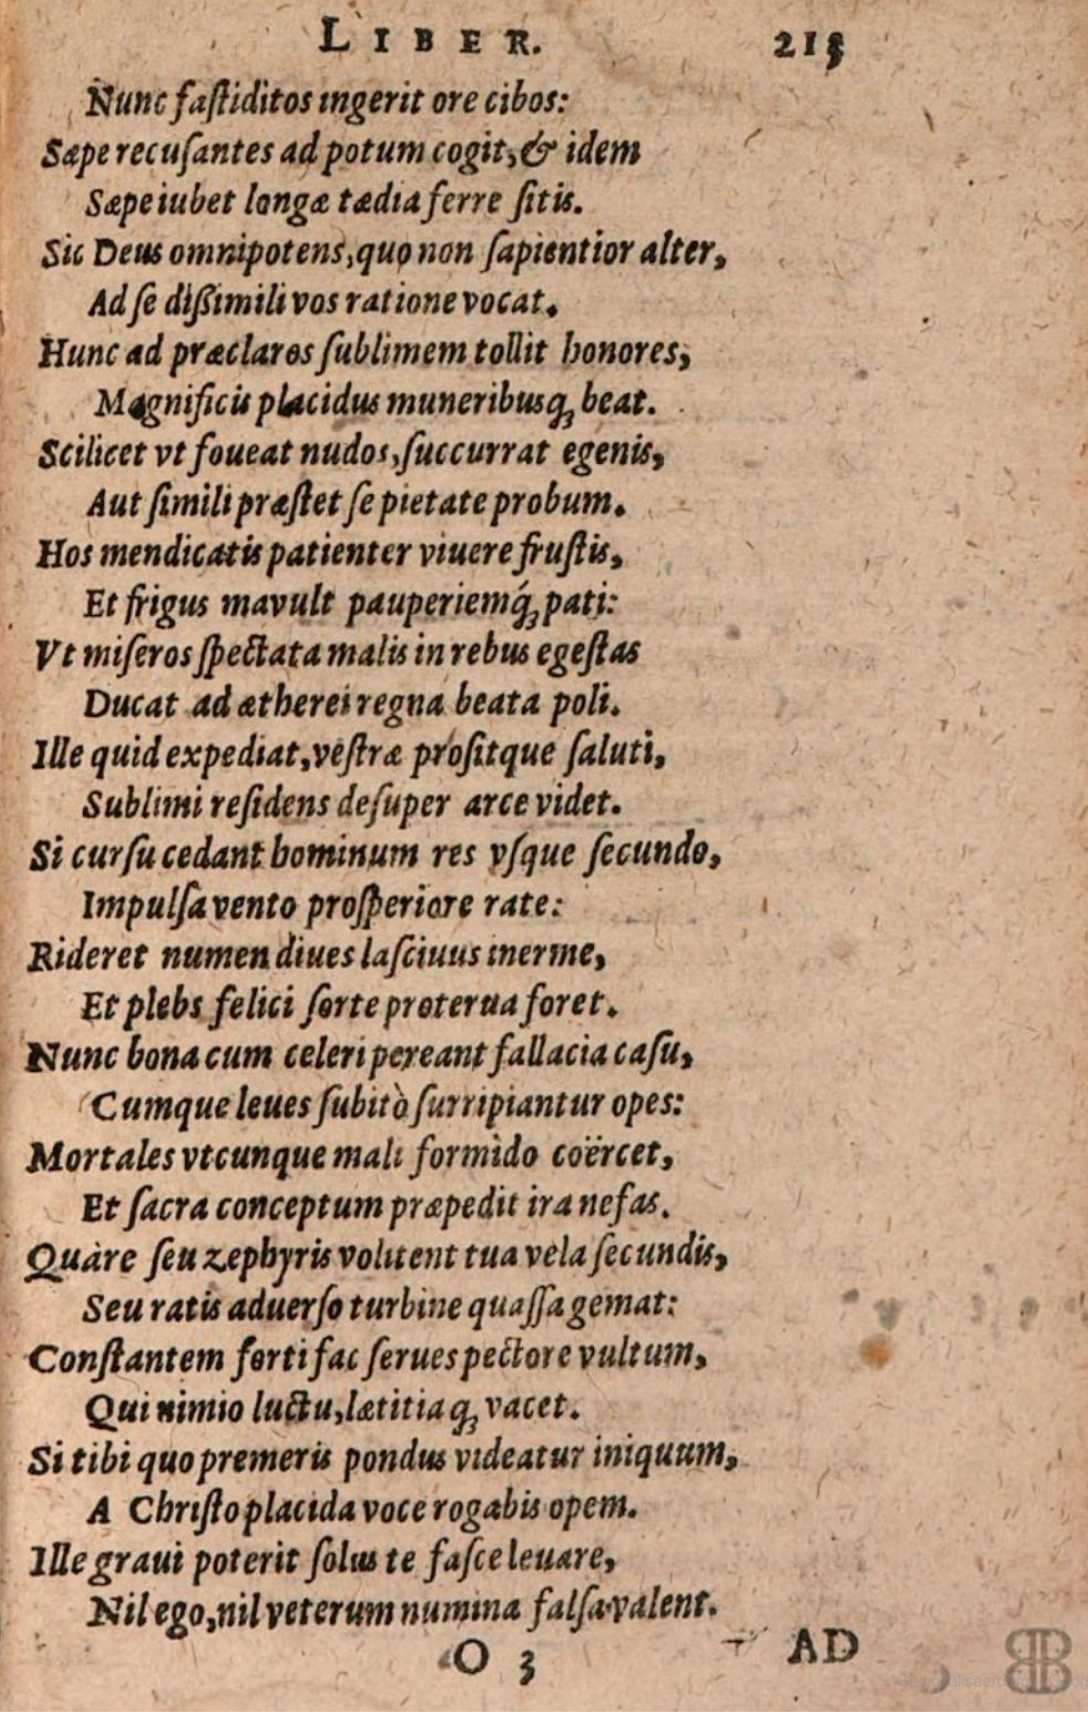 LIBER. 213
Nunc faſtiditos ingerit ore cibos:
Sæpe recuſantes ad potum cogit, & idem
Sæpe iubet longæ tædia ferre ſitis.
Sic Deus omnipotens, quo non ſapientior alter,
Ad ſe dißimili vos ratione vocat.
Hunc ad præclaros ſublimem tollit honores,
Magnificis placidus muneribusq́; beat.
Scilicet vt foueat nudos, ſuccurrat egenis,
Aut ſimili præſtet ſe pietate probum.
Hos mendicatis patienter viuere fruſtis,
Et frigus mavult pauperiemq́; pati:
Vt miſeros ſpectata malis in rebus egeſtas
Ducat ad ætherei regna beata poli.
Ille quid expediat, veſtræ proſitque ſaluti,
Sublimi reſidens deſuper arce videt.
Si curſu cedant hominum res vſque ſecundo,
Impulſa vento proſperiore rate:
Rideret numen diues laſciuus inerme,
Et plebs felici ſorte proterua foret.
Nunc bona cum celeri pereant fallacia caſu,
Cumque leues ſubitò ſurripiantur opes:
Mortales vtcunque mali formido coërcet,
Et ſacra conceptum præpedit ira nefas.
Quare ſeu zephyris volitent tua vela ſecundis,
Seu ratis aduerſo turbine quaſſa gemat:
Conſtantem forti fac ſerues pectore vultum,
Qui nimio luctu, lætitiaq; vacet.
Si tibi quo premeris pondus videatur iniquum,
A Chriſto placida voce rogabis opem.
Ille graui poterit ſolus te faſce leuare,
Nil ego, nil veterum numina falſa valent.
O 3 AD